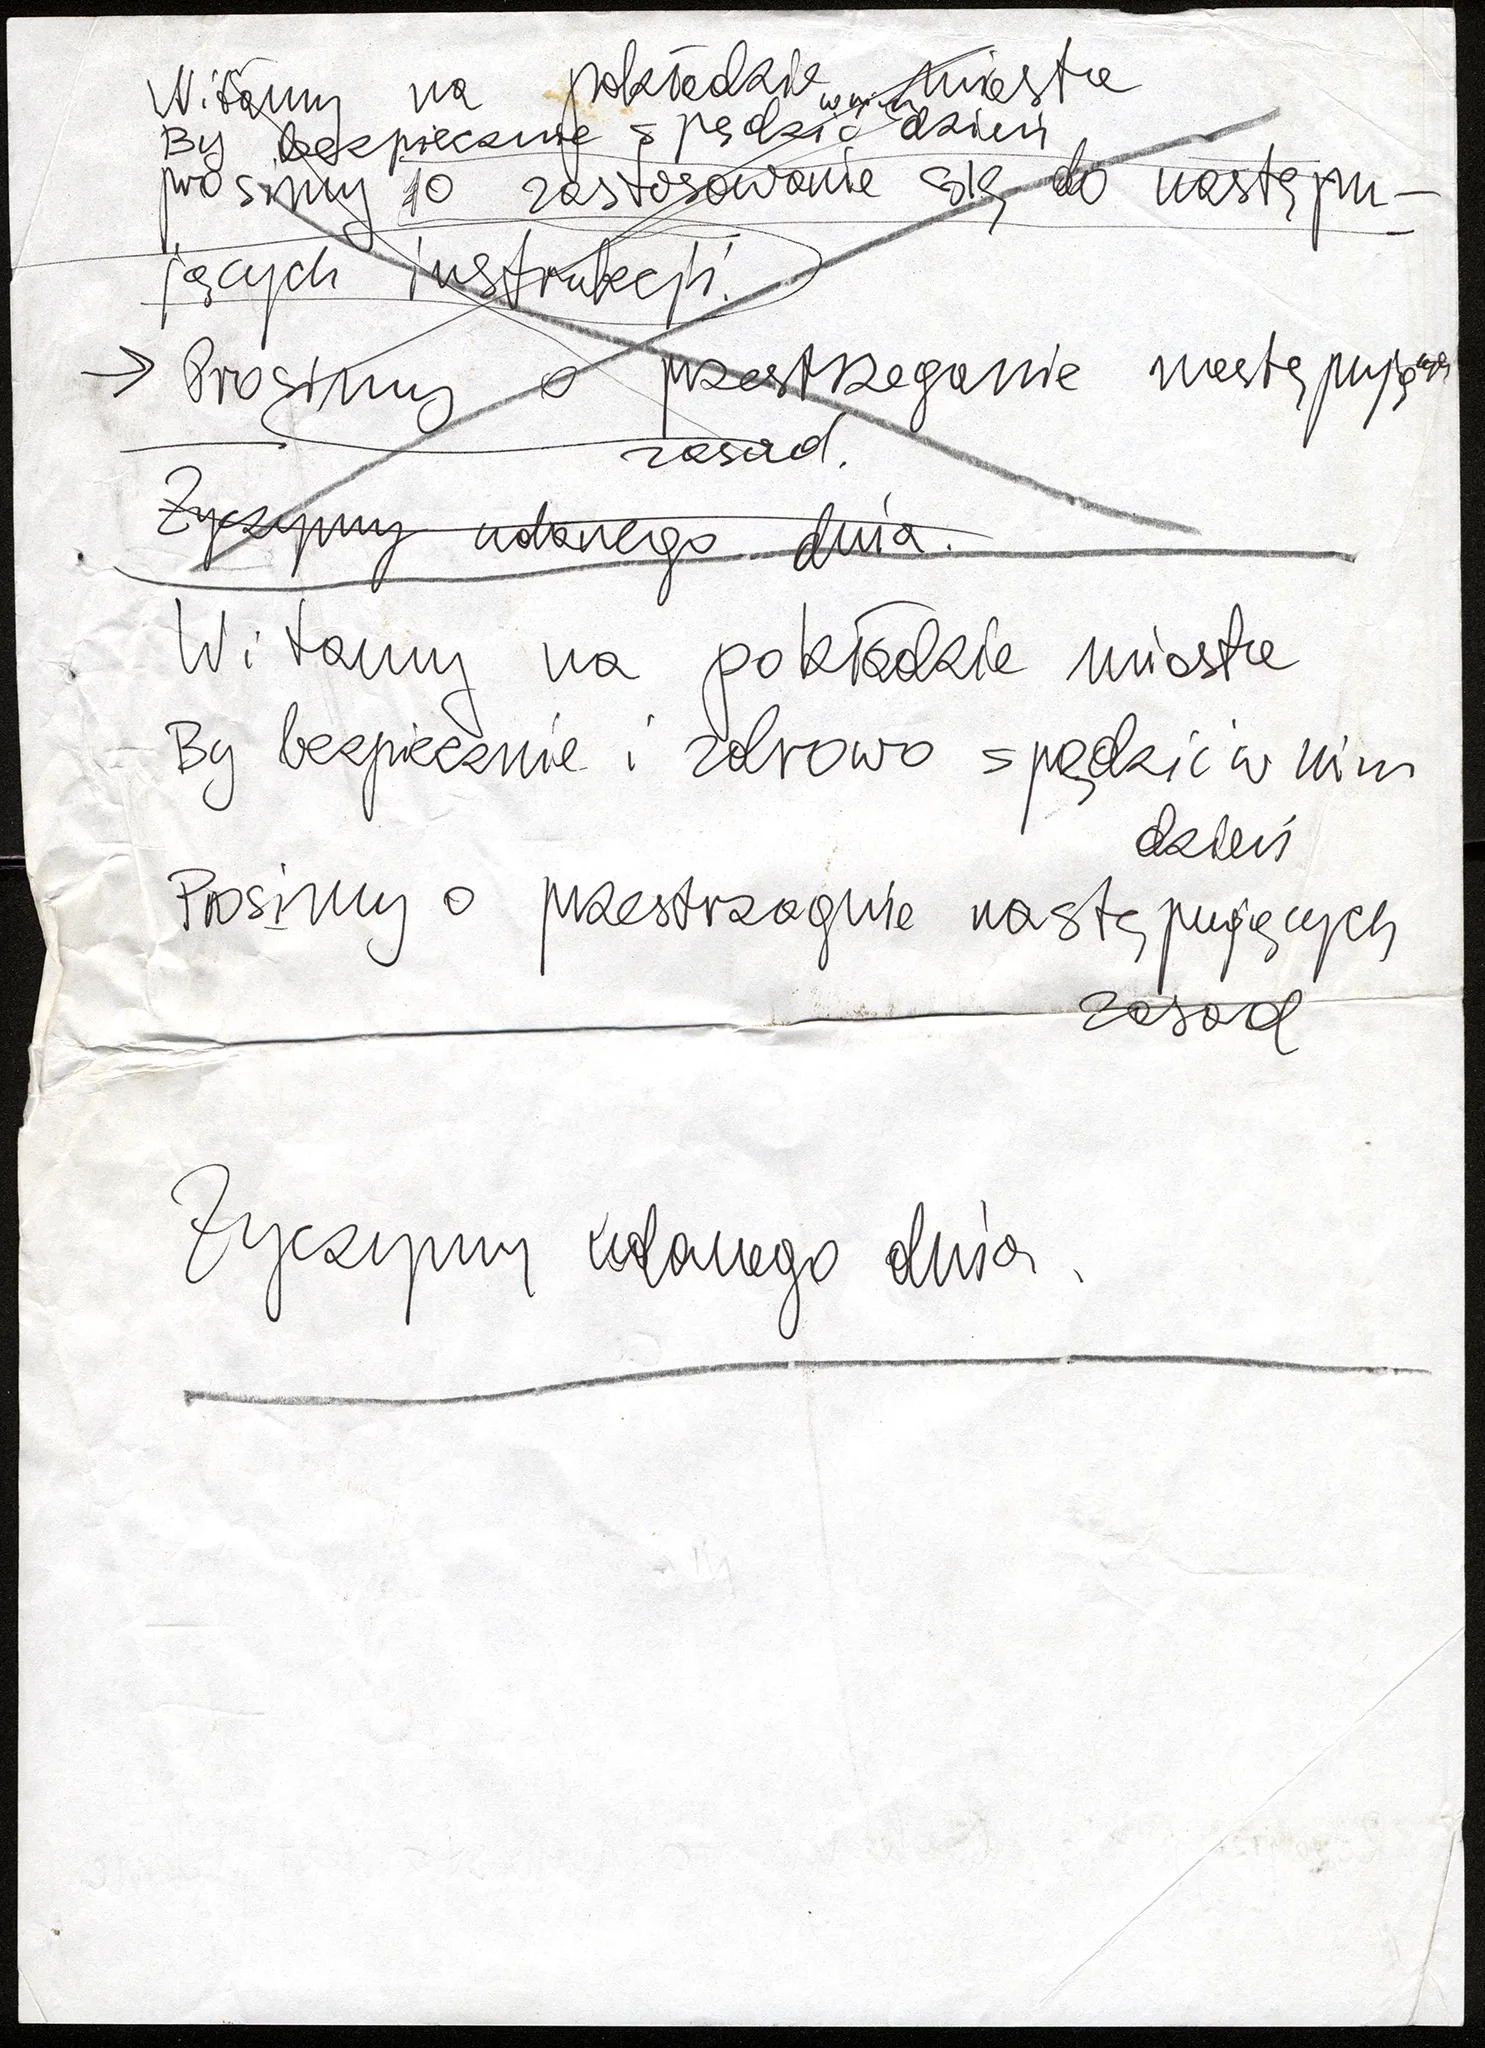 Witamy na pokładzie miasta
w nim
By bezpiecznie spędzić dzień
prosimy o zastosowanie się do następu-
jących instrukcji.
→ Prosimy o przestrzeganie następujących
zasad.
Życzymy udanego dnia.
Witamy na pokładzie miasta
By bezpiecznie i zdrowo spędzić w nim
dzień
Prosimy o przestrzagnie następujących
zasad
Życzymy udanego dnia.